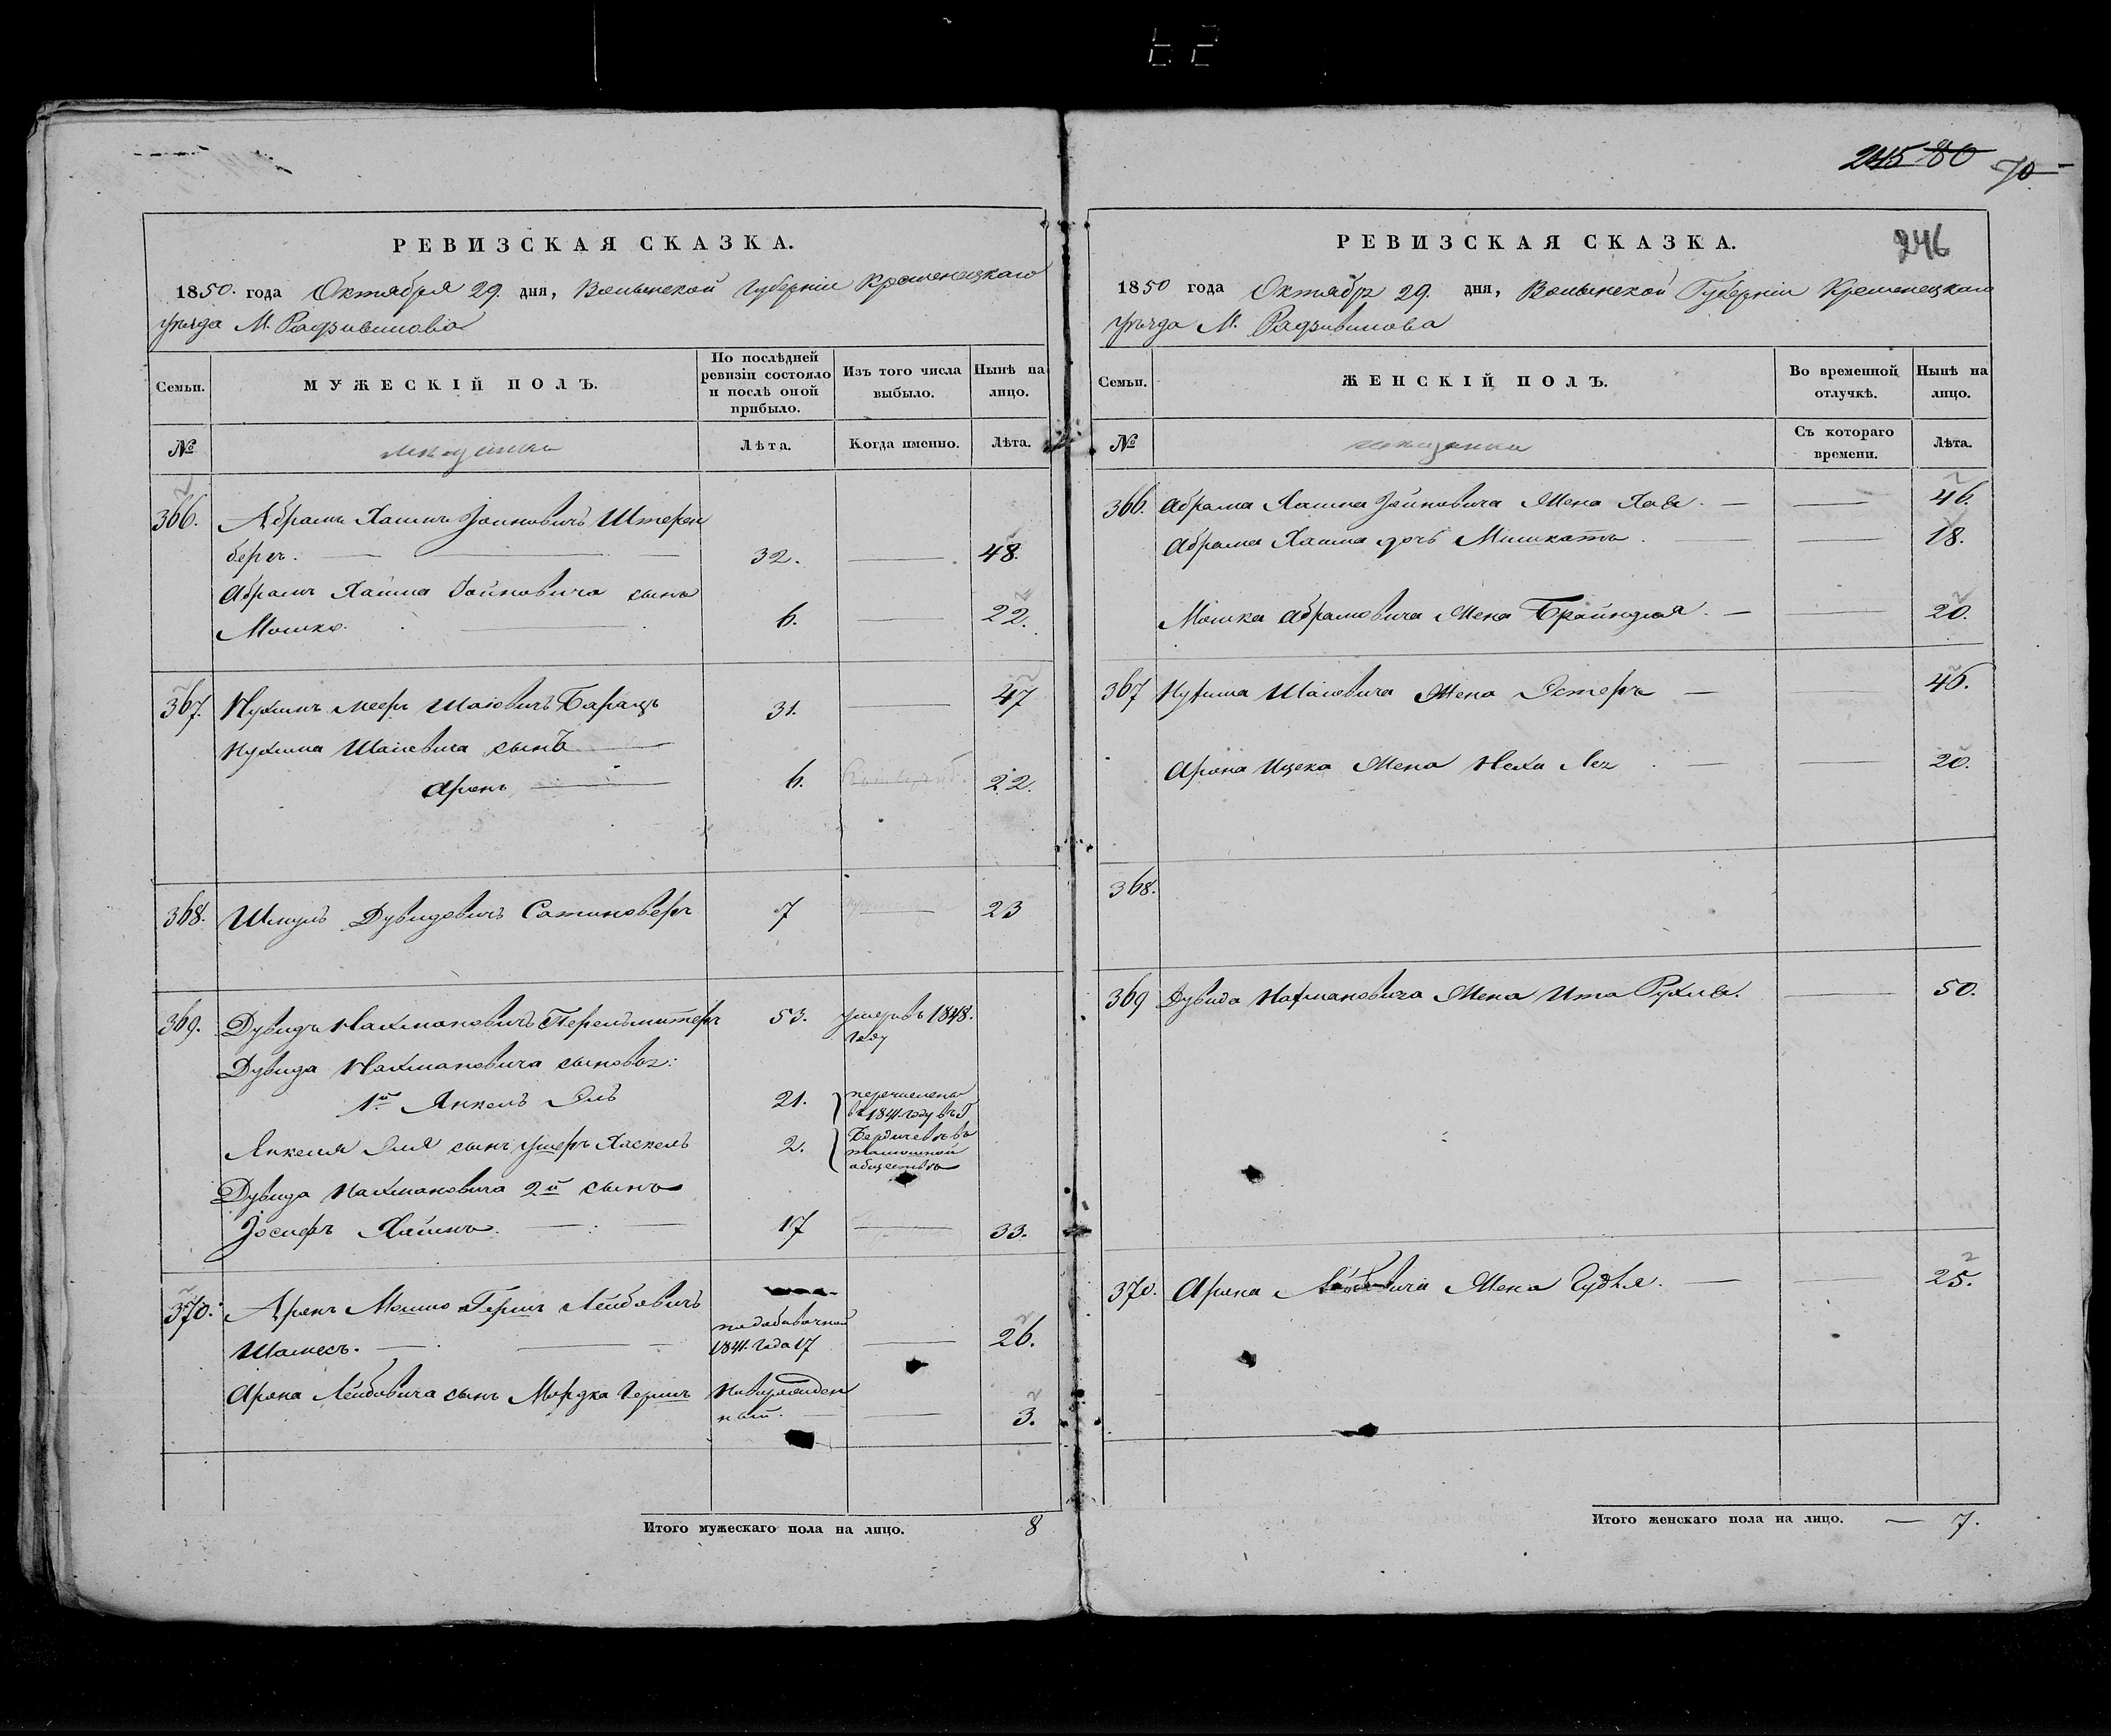 245 80 70
РЕВИЗСКАЯ СКАЗКА.
1850. года Октября 29. дня, Волынской Губерніи Кременецкаго
уѣзда М. Радзивилова
Семьи.
МУЖЕСКІЙ ПОЛЪ.
По послѣдней ревизіи состояло и послѣ оной прибыло.
Изъ того числа выбыло.
Нынѣ на лицо.
№
Лѣта.
Когда именно.
Лѣта.
366. Абрамъ Хаимъ Іойновичъ Штерен
бергъ. 32. 48.
Абрама Хаима Іойновича сынъ
Мошко. 6. 22.
367. Нухимъ Мееръ Шаіовичъ Барацъ 31. 47
Нухима Шаіовича сынъ
Аронъ 6. 22.
368. Шмуль Дувидовичъ Сатановеръ 7 23
369. Дувидъ Нахмановичъ Перельмутеръ 53. умеръ въ 1848.
году
Дувида Нахмановича сыновья:
1й Янкель Эль 21. перечислены
въ 1841 году въ Г
Янкеля Эля сынъ Ушеръ Хаскель 2. Бердичевъ въ
тамошной
общество
Дувида Нахмановича 2й сынъ
Іосифъ Хаимъ. 17 33.
370. Аронъ Мошко Гершъ Лейбовичъ
Шамесъ. подобавочной
1841. года 17 26.
Арона Лейбовича сынъ Мордко Гершъ Новорожден
ный. 3.
Итого мужескаго пола на лицо. 8
РЕВИЗСКАЯ СКАЗКА.
246
1850 года Октября 29. дня, Волынской Губерніи Кременецкаго
уѣзда М. Радзивилова
Семьи.
ЖЕНСКІЙ ПОЛЪ.
Во временной отлучкѣ.
Нынѣ на лицо.
№
Съ котораго времени.
Лѣта.
366. Абрама Хаима Іойновича Жена Хая. 46.
Абрама Хаима дочь 18.
Мошка Абрамовича Жена Брайндля. 20.
367 Нухима Шаіовича Жена Эстеръ 46.
Арона Ицека Жена Неха Лея 20.
368.
369 Дувида Нахмановича Жена Ита Рухля. 50.
370. Арона Лейбовича Жена 25.
Итого женскаго пола на лицо. 7.